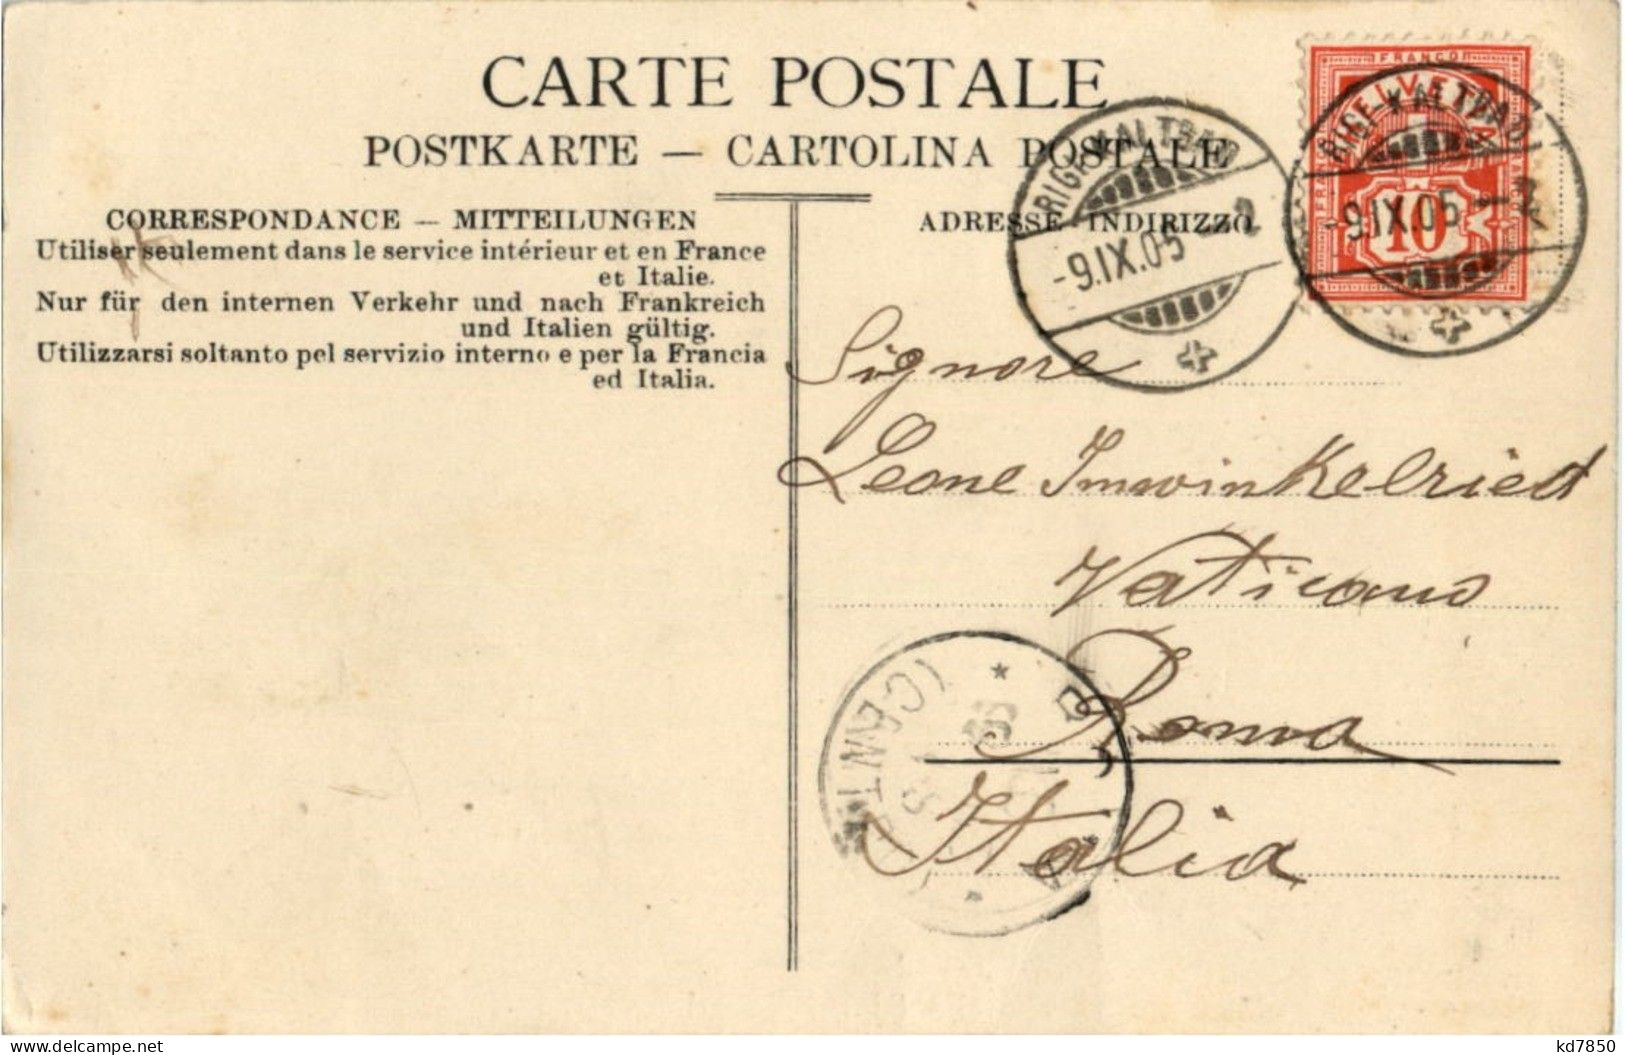 CARTE POSTALE
POSTKARTE — CARTOLINA POSTALE
CORRESPONDANCE — MITTEILUNGEN
Utiliser seulement dans le service intérieur et en France
et Italie.
Nur für den internen Verkehr und nach Frankreich
und Italien gültig.
Utilizzarsi soltanto pel servizio interno e per la Francia
ed Italia.
ADRESSE INDIRIZZO
RIGI-KALTBAD
-9.IX.05-2
FRANCO
HELVETIA
10
RIGI-KALTBAD
-9.IX.05-2
Signore
Leone Imwinkelried
Vaticano
Roma
Italia
(CENTRO)
delcampe.net
kd7850